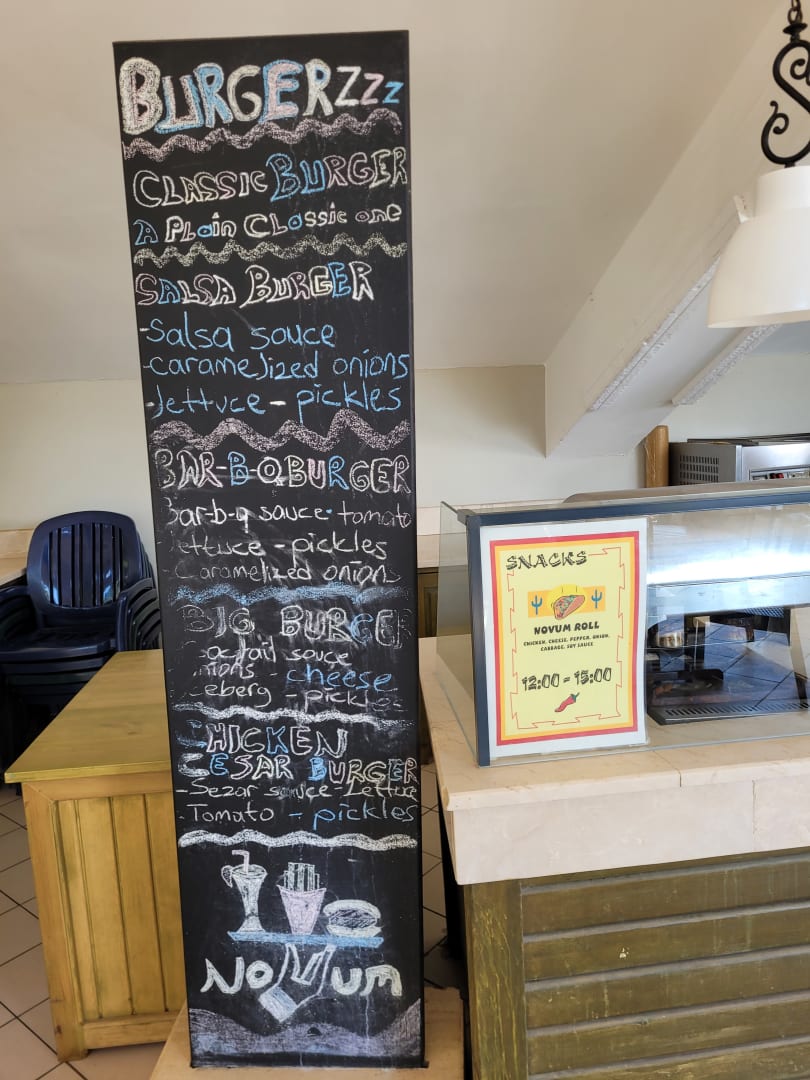 BURGERZZZ
CLASSIC BURGER
A Plain Classic one
SALSA BURGER
-Salsa sauce
-caramelized onions
-lettuce - pickles
BAR-B-Q BURGER
Bar-b-q sauce - tomato
lettuce - pickles
-Caramelized onion
BIG BURGER
sauce
onions - cheese
iceberg - pickles
CHICKEN
CESAR BURGER
- Sezar sauce - Lettuce
- Tomato - pickles
NOVUM
SNACKS
NOVUM ROLL
CHICKEN, CHEESE, PEPPER, ONION,
CABBAGE, SOY SAUCE
12:00 - 15:00